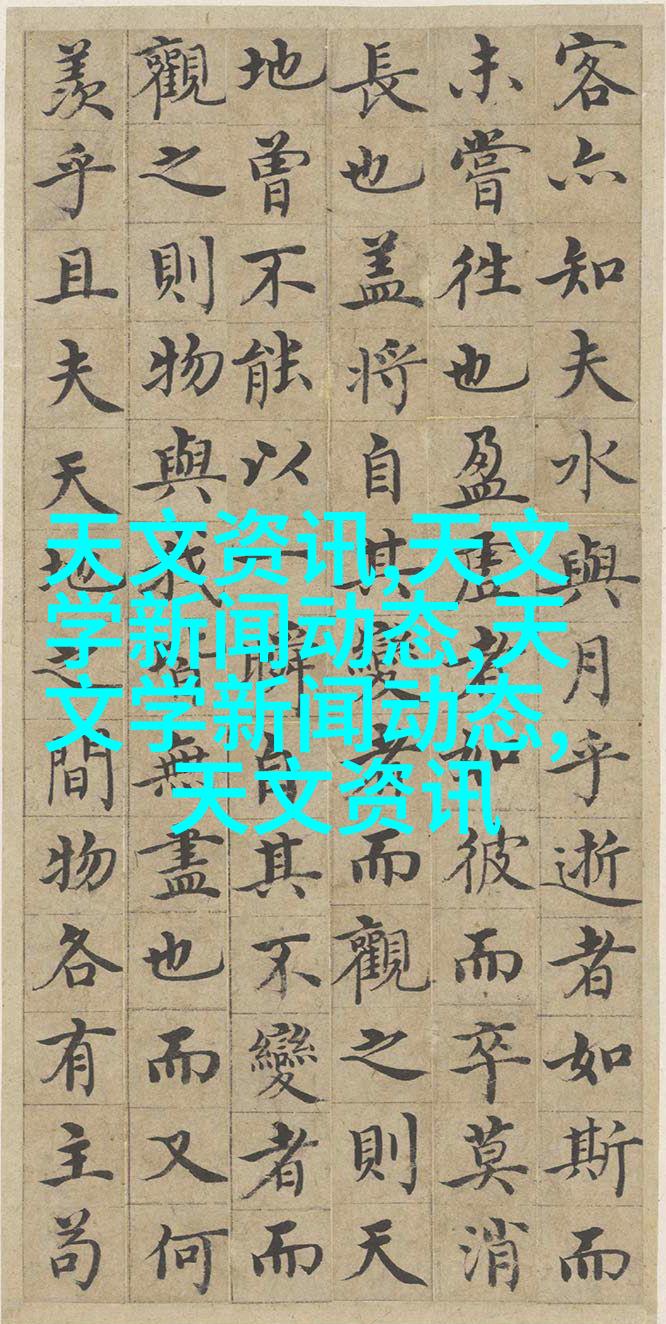 客亦知夫水與月乎逝者如斯而
未嘗往也盈虛者如彼而卒莫消
長也盖将自其變者而觀之則天
地曾不能以一瞬自其不變者而
觀之則物與我皆無盡也而又何
羨乎且夫天地之間物各有主苟
天文资讯,天文
学新闻动态,天
文学新闻动态,
天文资讯